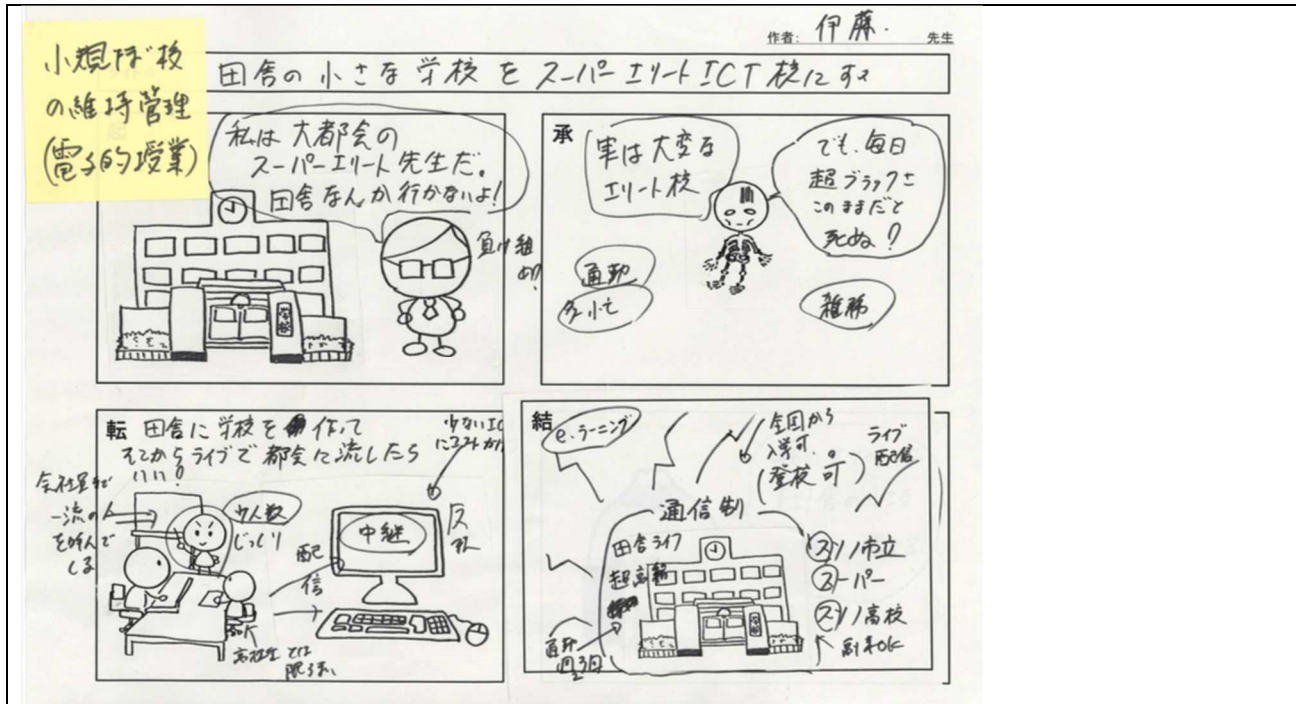 作者: 伊藤. 先生
小規ぼ校
の維持管理
(電子的授業)
田舎の小さな学校をスーパーエリートICT校にする
私は大都会の
スーパーエリート先生だ。
田舎なんか行かないよ!
負け組
め!!
学校
承
実は大変な
エリート校
でも、毎日
超ブラックさ
このままだと
死ぬ?
通勤
雑務
転 田舎に学校を作って
そこからライブで都会に流したら
いい!
一流の人
を呼んで
くる
少人数
じっくり
配
信
中継
高校生とは
限らない
結
e.ラーニング
全国から
入学可.。
(登校可)
ライブ
配信
通信制
田舎ライフ
超高給
通勤
週3日
スソノ市立
スーパー
スソノ高校
副業OK